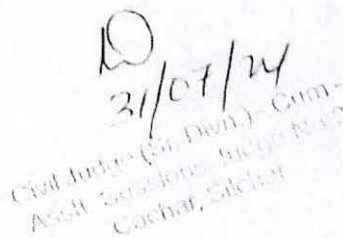 31/07/24
Civil Judge (Sr. Divn.) - Cum -
Asstt. Sessions Judge No. 2
Cachar, Silchar